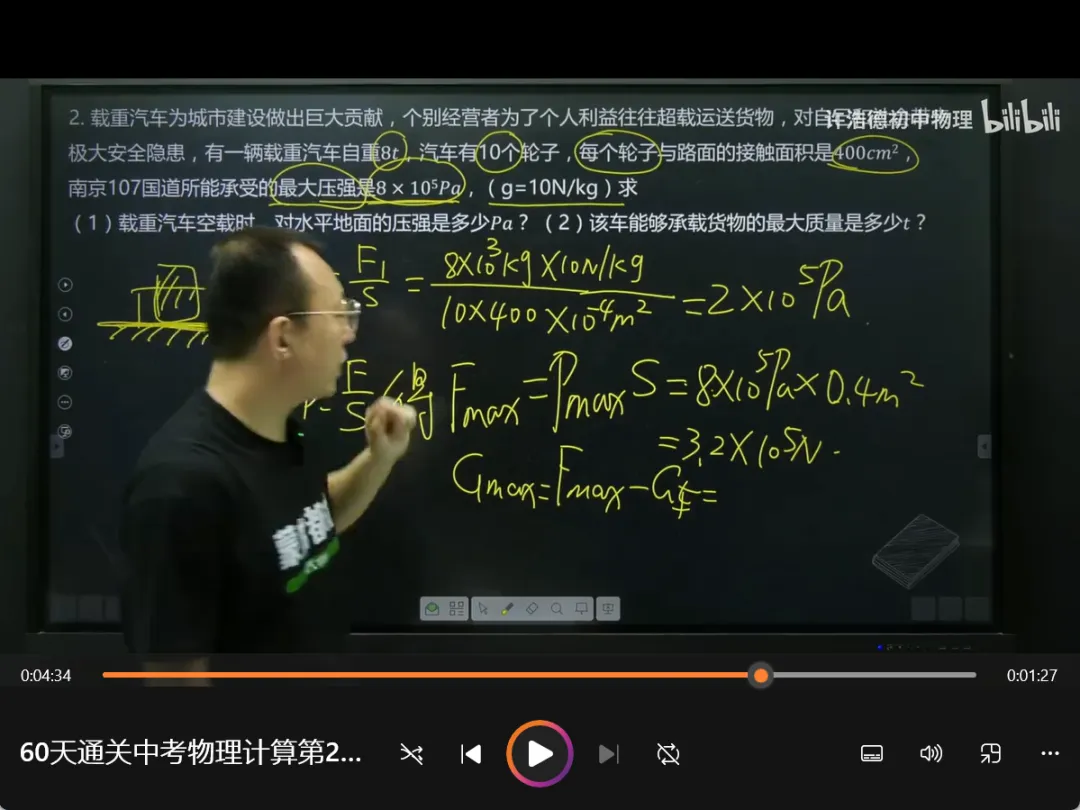 2. 载重汽车为城市建设做出巨大贡献，个别经营者为了个人利益往往超载运送货物，对自
许浩德初中物理
bilibili
极大安全隐患，有一辆载重汽车自重8t，汽车有10个轮子，每个轮子与路面的接触面积是400cm²，
南京107国道所能承受的最大压强是8×10⁵Pa，（g=10N/kg）求
（1）载重汽车空载时 对水平地面的压强是多少Pa？（2）该车能够承载货物的最大质量是多少t？
F₁/S = 8×10³kg×10N/kg / 10×400×10⁻⁴m² = 2×10⁵Pa
F/S 得 Fmax=PmaxS=8×10⁵Pa×0.4m²
=3.2×10⁵N.
Gmax=Fmax-G车=
0:04:34
0:01:27
60天通关中考物理计算第2...